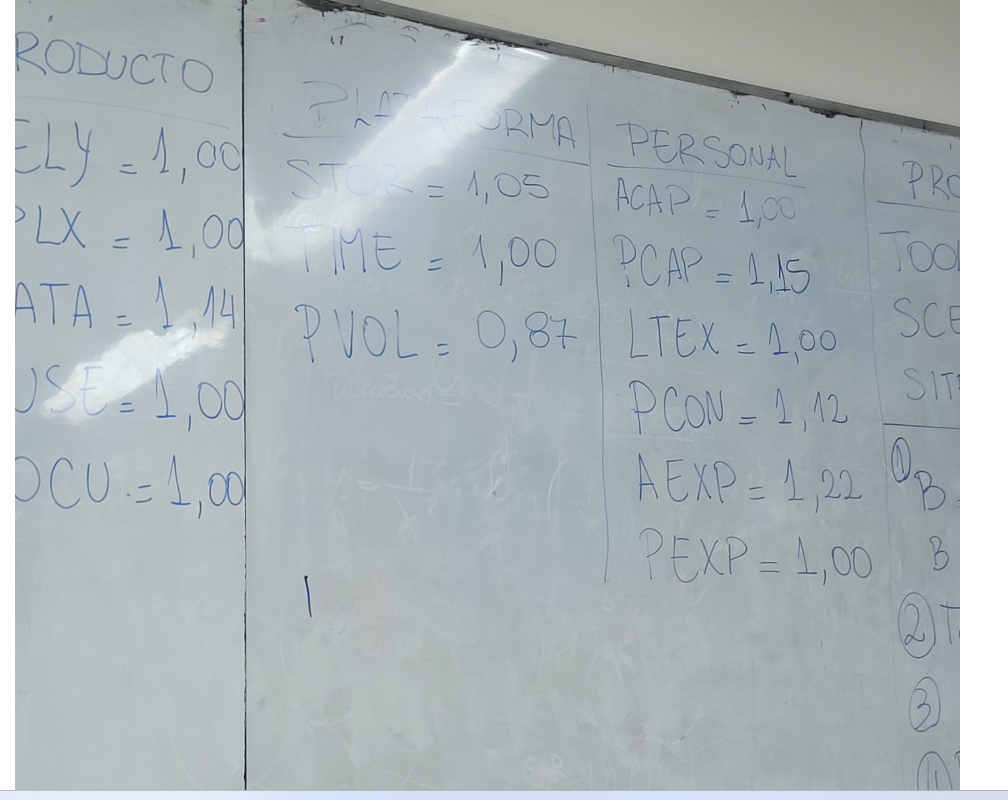 RODUCTO
ELY = 1,00
PLX = 1,00
ATA = 1,14
USE = 1,00
OCU = 1,00
PLATAFORMA
STOR = 1,05
TIME = 1,00
PVOL = 0,87
PERSONAL
ACAP = 1,00
PCAP = 1,15
LTEX = 1,00
PCON = 1,12
AEXP = 1,22
PEXP = 1,00
PRO
TOOL
SCE
SITE
① B
B
② T
③